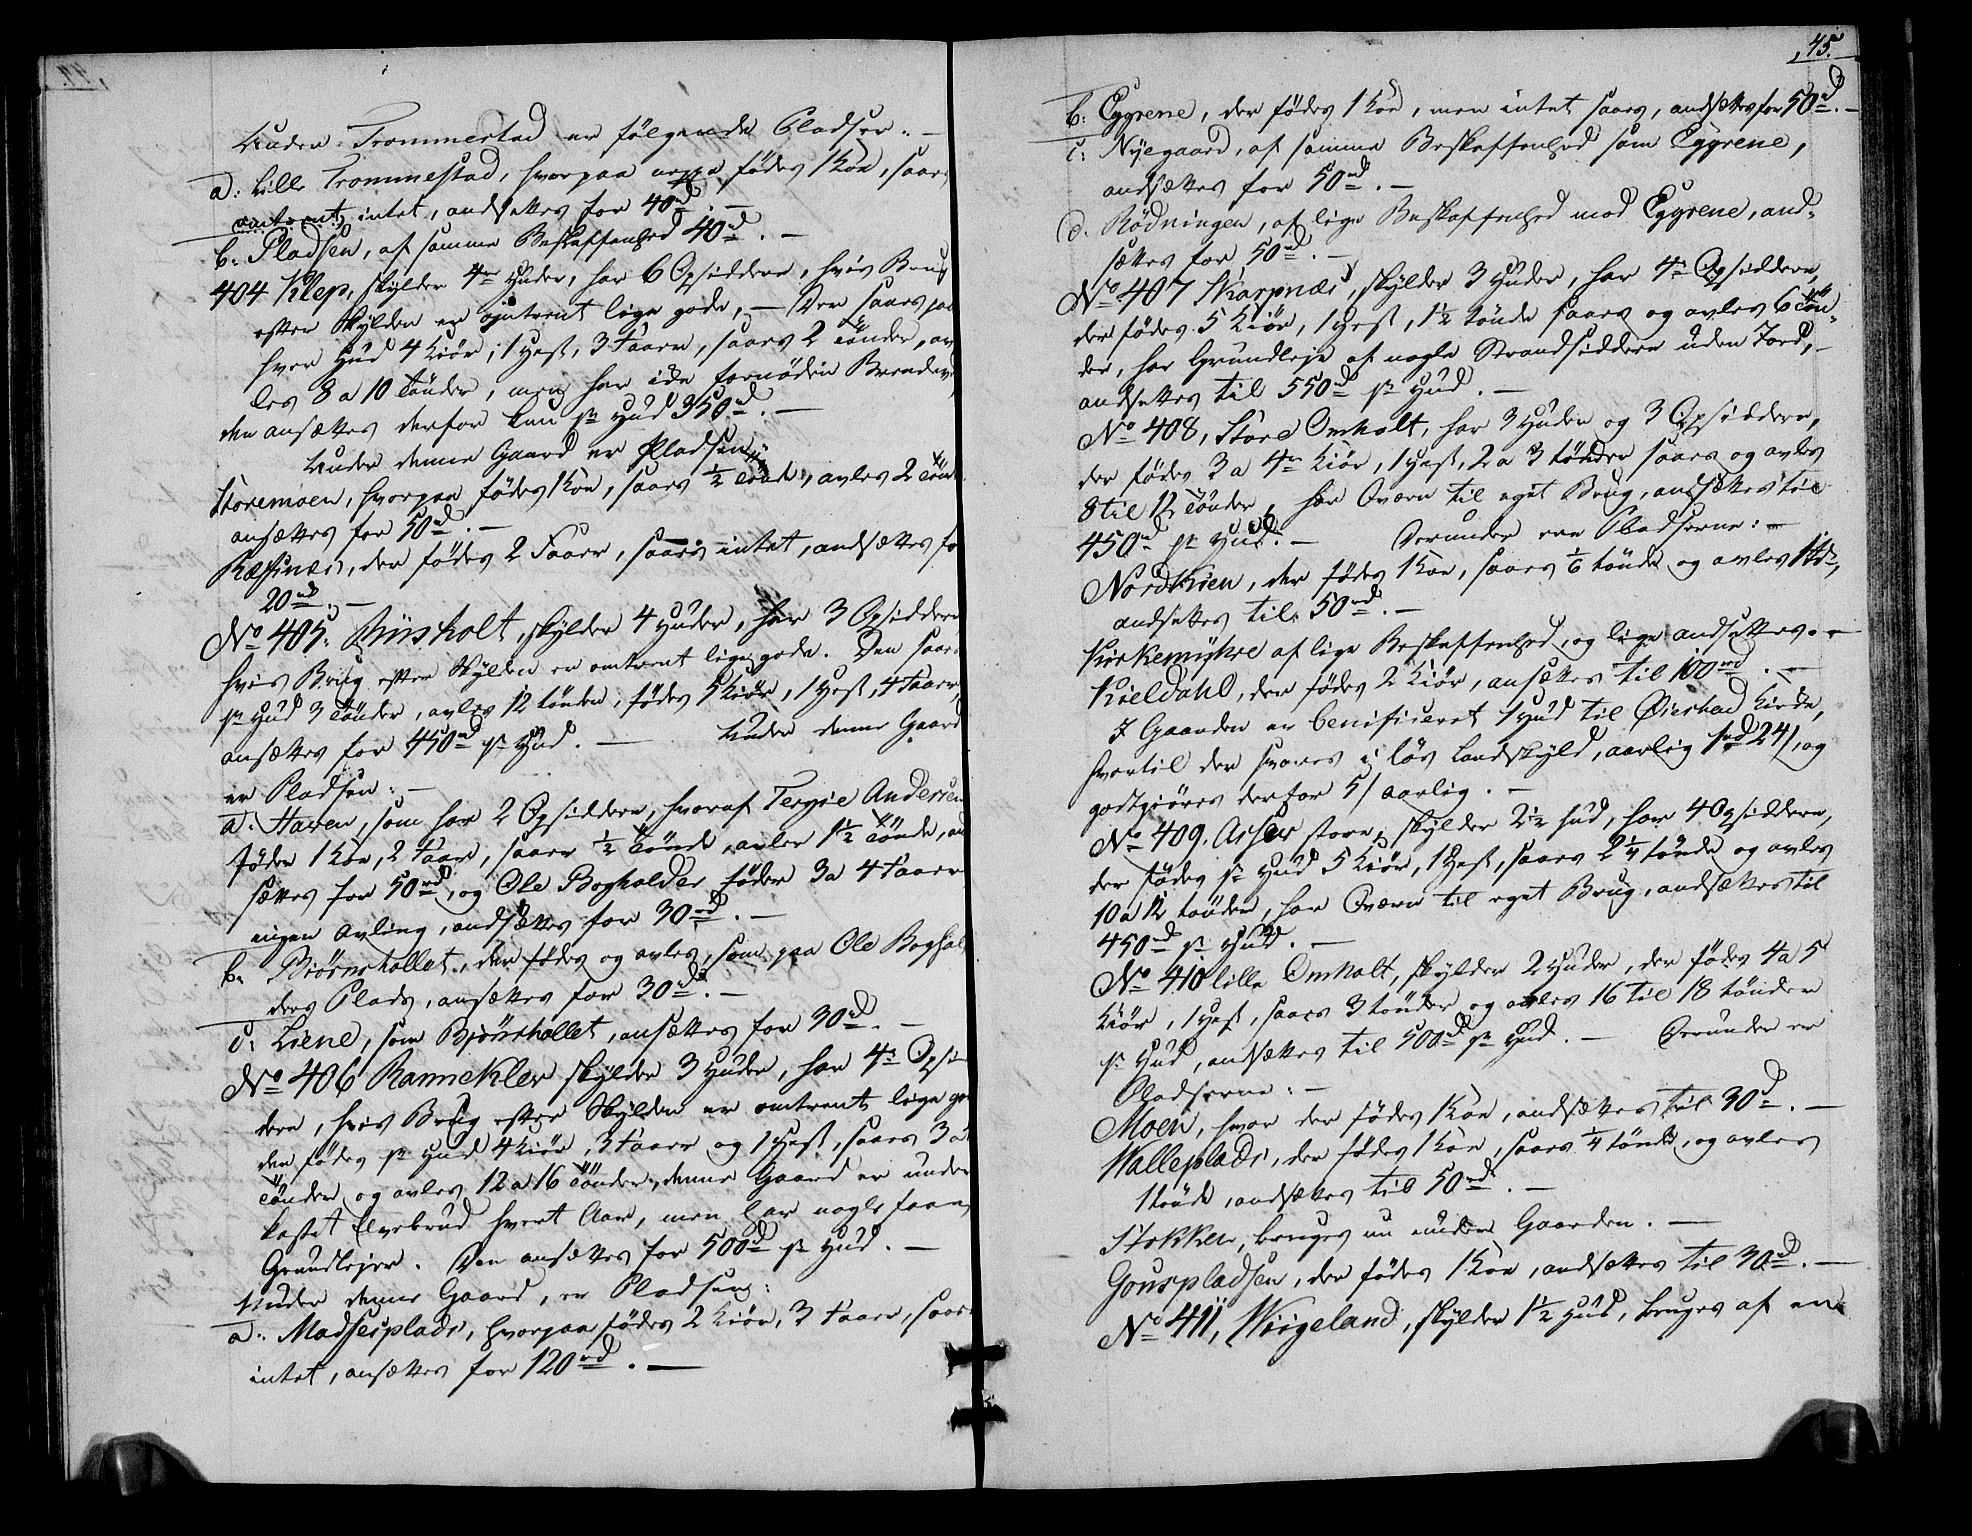 Under Trommestad er følgende Pladser. —
a: Lille Trommestad, hvorpaa neppe fødes 1 Koe, saaes
omtrent intet, andsettes for 40rd. —
b: Pladsen, af samme Beskaffenhed 40rd. —
404 Klep, skylder 4re Huder, har 6 Opsiddere, hvis Brug
efter Skylden er omtrent lige gode, — Der saaes paa
hver Hud 4 Kiør, 1 Hest, 3 Faarr, saaes 2 Tønder, av
les 8 a 10 Tønder, men har ikke fornøden Brændeve
den ansættes derfor kun pr Hud 350rd. —
Under denne Gaard er Pladsen
Storemoen, hvorpaa fødes 1 Koe, saaes ½ Tønde, avles 2 Tønd
ansættes for 50rd. —
Ræssnæs, der fødes 2 Faarr, saaes intet, andsættes fo
20rd. —
No 405. Biisholt, skylder 4 Huder, har 3 Opsiddere
hvis Brug efter Skylden er omtrent lige gode. Den saaes
pr Hud 3 Tønder, avles 12 tønder, fødes 5 Kiør, 1 Hest, 4 Faarr,
ansættes for 450rd pr Hud. — Under denne Gaard
er Pladsen: —
a: Haven, som har 2 Opsiddere, hvoraf Tergie Andersen
føder 1 Koe, 2 Faar, saaer ½ Tønde, avler 1½ Tønde, an
sættes for 50rd, og Ole Bogholder føder 3 a 4 Faarr
ingen Avling, andsættes for 30rd. —
b: Biørnshollet, der fødes og avles, som paa Ole Boghol
ders Plads, ansættes for 30rd. —
c: Liene, som Bjørnshollet, ansættes for 30rd. —
No 406 Rannekler skylder 3 Huder, har 4re Opsi
dere, hvis Brug efter Skylden er omtrent lige go
der fødes pr Hud 4 Kiør, 3 Faarr og 1 Hest, saaes 3 a
Tønder og avles 12 a 16 Tønder, denne Gaard er under
kastet Elvebrud hvert Aar, men har nogle faae
Grundlejer. Den ansættes for 500rd pr Hud. —
Under denne Gaard, er Pladsen:
a: Madsesplads, hvorpaa fødes 2 Kiør, 3 Faarr, saaes
intet, ansættes for 120rd. —
45.
b: Eggrene, der fødes 1 Koe, men intet saaes, andsættes for 50rd. —
c: Nyegaard, af samme Beskaffenhed som Eggrene,
andsættes for 50rd. —
d. Rødningen, af lige Beskaffenhed med Eggrene, and-
sættes for 50rd. —
No 407 Skarpnæs, skylder 3 Huder, har 4re Opsiddere,
der fødes 5 Kiør, 1 Hest, 1½ tønde saaes og avles 6 Tøn-
der, har Grundleje af nogle Strandsiddere uden Jord,
andsettes til 550rd pr Hud. —
No 408, Store Omholt, har 3 Huder og 3 Opsiddere,
der fødes 3 a 4re Kiør, 1 Hest, 2 a 3 tønder saaes og avles
8 til 12 Tønder, har Qværn til eget Brug, andsættes til
450rd pr Hud. — Derunder ere Pladserne: —
Nordkien, der fødes 1 Koe, saaes ⅙ tønde og avles 1 Tde,
andsettes til 50rd. —
Kirkemyhre af lige Beskaffenhed og lige andsettes. —
Kieldahl, der fødes 2 Kiør, ansættes til 100rd. —
I Gaarden er benificeret 1 Hud til Øiestad Kirke,
hvortil der svares i løs Landskyld, aarlig 1rd 24s, og
godtgiøres derfor 5s aarlig. —
No 409. Asser store, skylder 2½ hud, har 4 Opsiddere,
der fødes pr Hud 5 Kiør, 1 Hest, saaes 2¼ tønde og avles
10 a 12 tønder, har Qværn til eget Brug, andsættes til
450rd pr Hud. —
No 410 lille Omholt, skylder 2 Huder, der fødes 4 a 5
Kiør, 1 Hest, saaes 3 tønder og avles 16 til 18 tønder
pr Hud, andsættes til 500rd pr Hud. — Derunder er
Pladserne: —
Moen, hvor der fødes 1 Koe, andsættes til 30rd. —
Walleplads, der fødes 1 Koe, saaes ¼ tønde, og avles
1 tønde, andsættes til 50rd. —
Stokken, bruges nu under Gaarden. —
Gouspladsen, der fødes 1 Koe, andsættes til 30rd. —
No 411, Wiigeland, skylder 1½ Hud, bruges af en